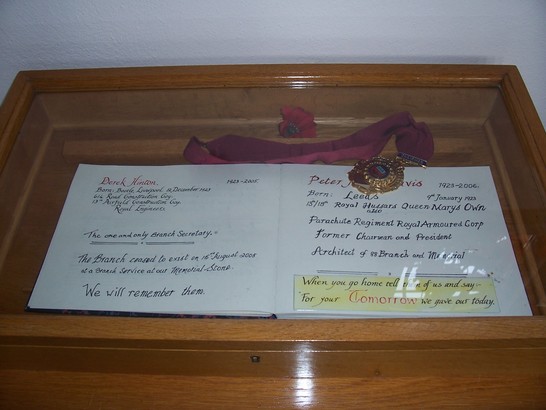 Derek Hinton. 1923-2005
Born: Bootle, Liverpool 18 December 1923
Road Construction Coy.
Airfield Construction Coy.
Royal Engineers
"The one and only Branch Secretary."
The Branch ceased to exist on 16th August 2005
at a Branch Service at our Memorial Stone.
We will remember them.
Peter 1923-2006.
Born: Leeds 9th January 1923
15/19th Royal Hussars Queen Mary's Own
also
Parachute Regiment Royal Armoured Corp
Former Chairman and President
Architect of Branch and Memorial
When you go home tell of us and say
For your Tomorrow we gave our today.